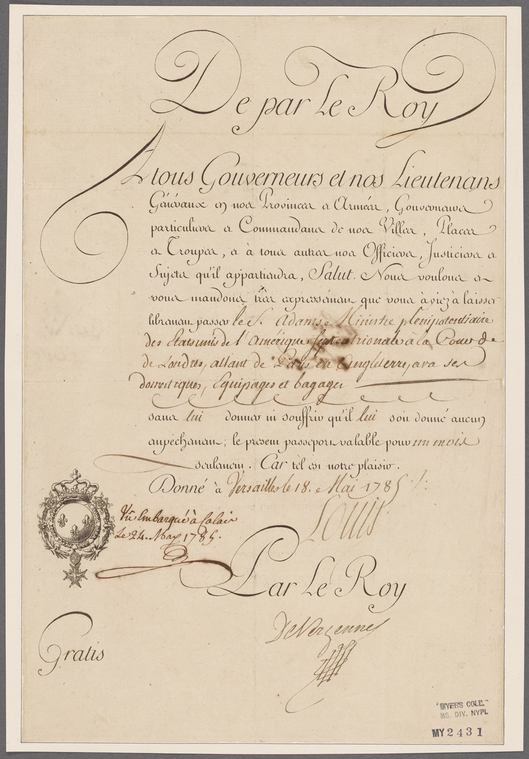 De par Le Roy
A tous Gouverneurs et nos Lieutenans
Généraux en nos Provinces et Armées, Gouverneurs
particuliers et Commandans de nos Villes, Places
et Troupes, et à tous autres nos Officiers, Justiciers et
Sujets qu'il appartiendra, Salut. Nous voulons et
vous mandons très expressément que vous ayiez à laisser
librement passer le S. Adams Ministre plenipotentiaire
des Etats unis de l'Amérique septentrionale a la Cour de
de Londres, allant de Paris en Angleterre, avec ses
domestiques, Equipages et bagages
sans lui donner ni souffrir qu'il lui soit donné aucun
empêchement; le présent passeport valable pour un mois
seulement. Car tel est notre plaisir.
Donné à Versailles le 18. Mai 1785
Vu Embarqué à Calais
Le 24. May 1785.
Louis
Par Le Roy
De Vergennes
Gratis
"MYERS COLL."
MS. DIV. NYPL
MY 2431